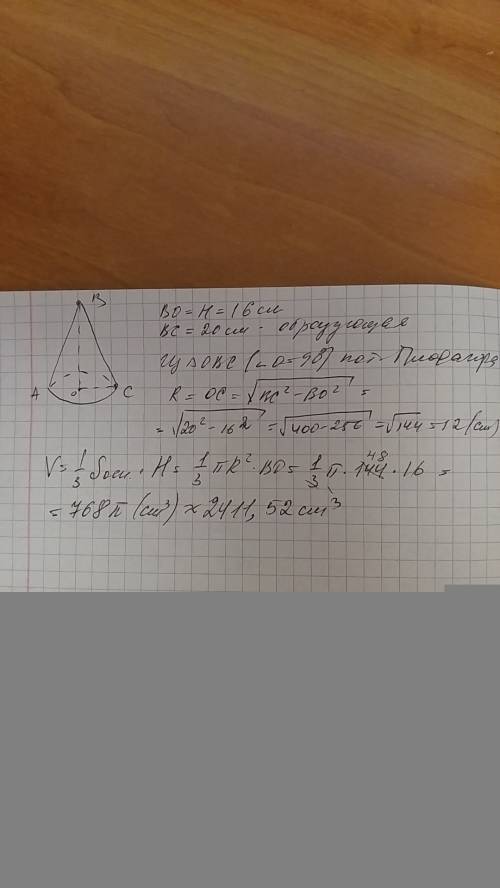 B
A
O
C
BO = H = 16 см
BC = 20 см - образующая
Из △OBC (∠O = 90°) по т. Пифагора
R = OC = √(BC² - BO²) =
= √(20² - 16²) = √(400 - 256) = √144 = 12 (см)
V = 1/3 Sосн · H = 1/3 πR² · BO = 1/3 π · 144 · 16 =
48
= 768π (см³) ≈ 2411,52 см³